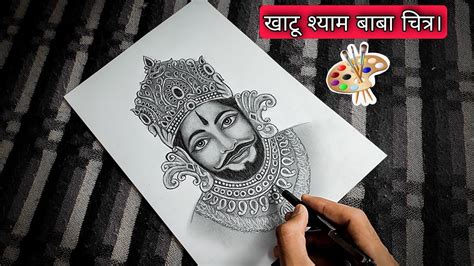 खाटू श्याम बाबा चित्र।